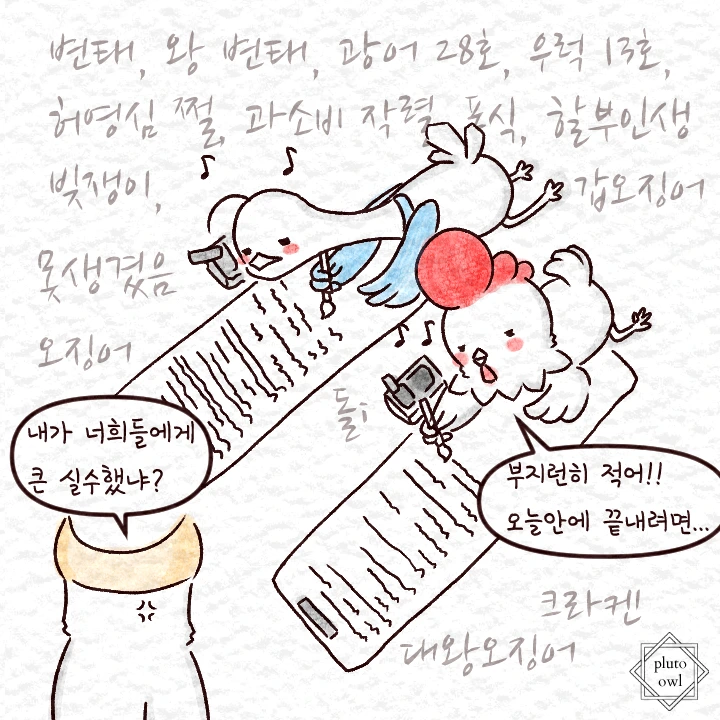 변태, 왕 변태, 광어 28호, 우럭 13호,
허영심 쩔, 과소비 작렬, 폭식, 할부인생
빚쟁이,
갑오징어
못생겼음
오징어
돌i
내가 너희들에게
큰 실수했냐?
부지런히 적어!!
오늘안에 끝내려면...
크라켄
대왕오징어
pluto
owl